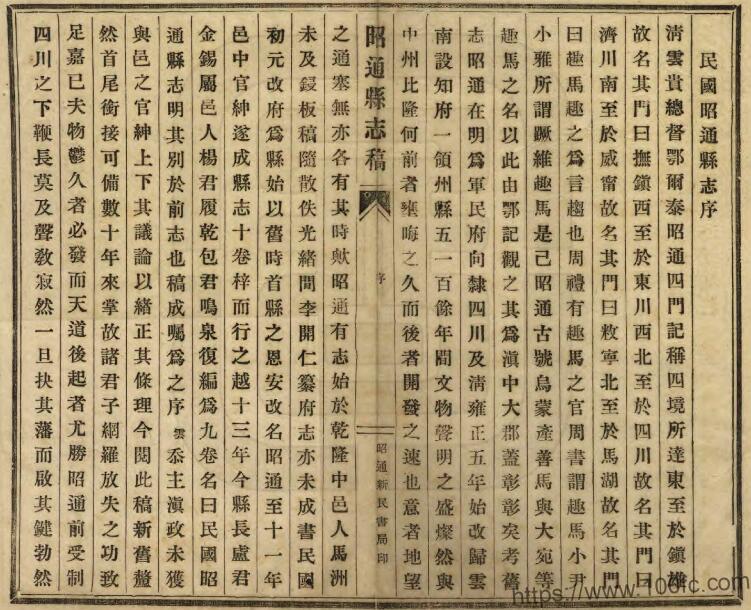 民國昭通縣志序
清雲貴總督鄂爾泰昭通四門記稱四境所達東至於鎮雄
故名其門曰撫鎮西至於東川西北至於四川故名其門曰
濟川南至於威甯故名其門曰敉寧北至於馬湖故名其門
曰趣馬趣之爲言趨也周禮有趣馬之官周書謂趣馬小尹
小雅所謂蹶維趣馬是已昭通古號烏蒙產善馬與大宛等
趣馬之名以此由鄂記觀之其爲滇中大郡蓋彰彰矣考舊
志昭通在明爲軍民府向隸四川及清雍正五年始改歸雲
南設知府一領州縣五一百餘年間文物聲明之盛燦然與
中州比隆何前者壅晦之久而後者開發之速也意者地望
昭通縣志稿
序
昭通新民書局印
之通塞無亦各有其時歟昭通有志始於乾隆中邑人馬洲
未及鋟板稿隨散佚光緒間李開仁纂府志亦未成書民國
初元改府爲縣始以舊時首縣之恩安改名昭通至十一年
邑中官紳遂成縣志十卷梓而行之越十三年今縣長盧君
金錫屬邑人楊君履乾包君鳴泉復編爲九卷名曰民國昭
通縣志明其別於前志也稿成囑爲之序雲忝主滇政未獲
與邑之官紳上下其議論以緒正其條理今閱此稿新舊釐
然首尾銜接可備數十年來掌故諸君子網羅放失之功致
足嘉已夫物鬱久者必發而天道後起者尤勝昭通前受制
四川之下鞭長莫及聲敎寂然一旦抉其藩而啟其鍵勃然
https://www.100fc.com